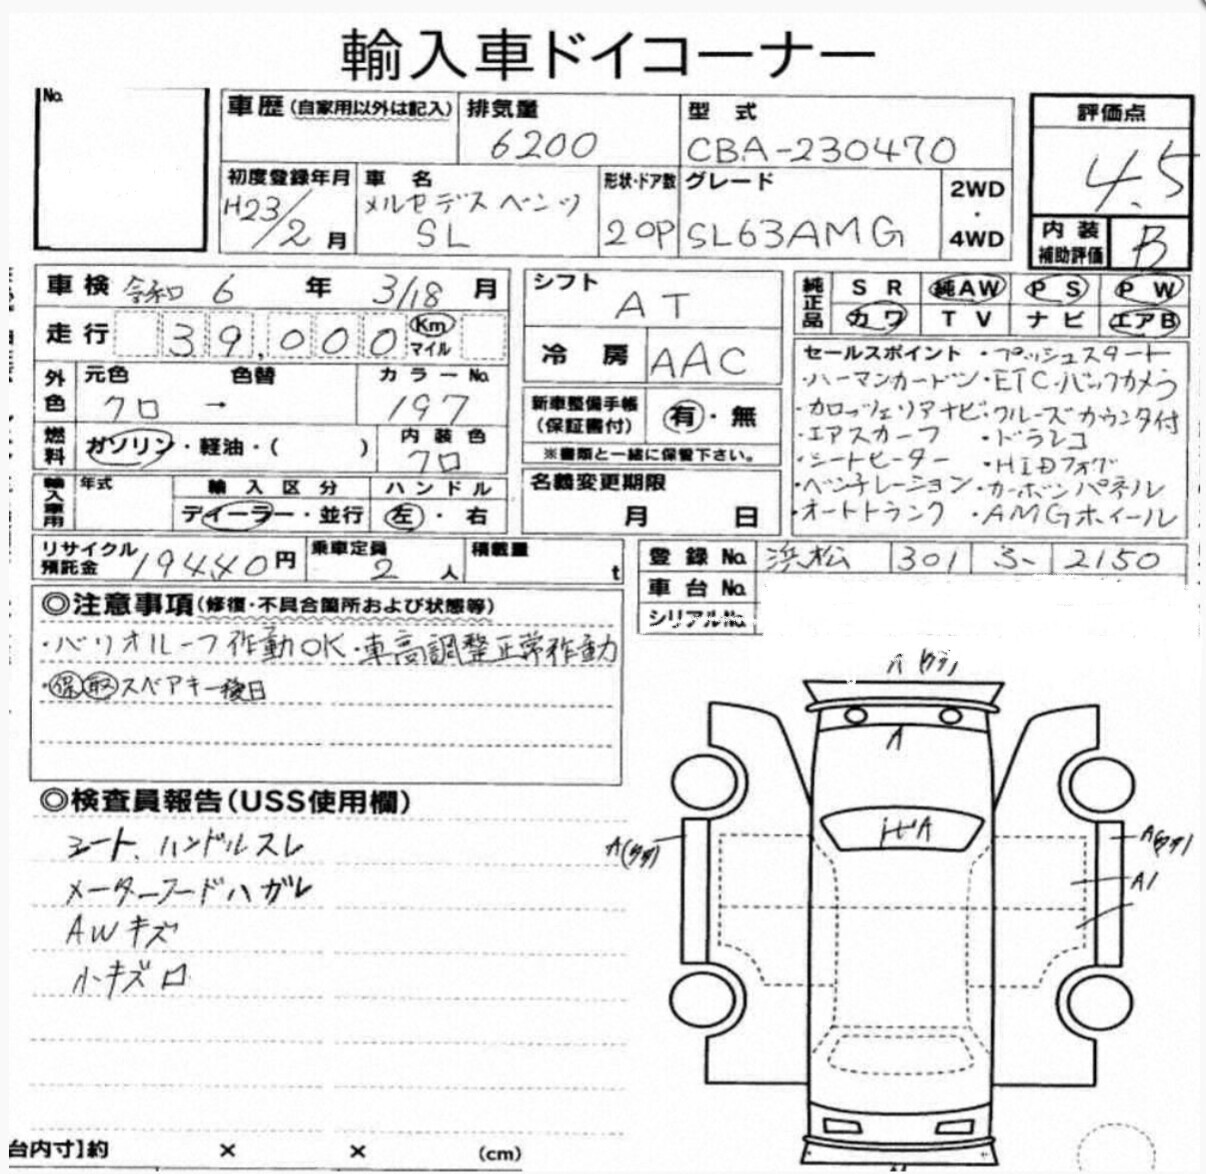 輸入車ドイコーナー
No.
車歴(自家用以外は記入)
排気量
6200
型式
CBA-230470
評価点
4.5
初度登録年月
H23/2月
車名
メルセデスベンツ
SL
形状・ドア数
2OP
グレード
SL63AMG
2WD
・
4WD
内装
補助評価
B
車検 令和 6 年 3/18 月
シフト
AT
純正品
SR 純AW PS PW
カワ TV ナビ エアB
走行 39,000 Km
マイル
冷房 AAC
セールスポイント ・プッシュスタート
・ハーマンカードン・ETC・バックカメラ
・カロッツェリアナビ・クルーズカウンタ付
・エアスカーフ ・ドラレコ
・シートヒーター ・HIDフォグ
・ベンチレーション・カーボンパネル
・オートトランク ・AMGホイール
外色
元色 色替
クロ →
カラーNo.
197
新車整備手帳
(保証書付)
有・無
※書類と一緒に保管下さい。
燃料
ガソリン・軽油・( )
内装色
クロ
名義変更期限
月 日
輸入車用
年式
輸入区分
ディーラー・並行
ハンドル
左・右
リサイクル
預託金
19440円
乗車定員
2人
積載量
t
登録No. 浜松 301 ふ 2150
車台No.
シリアルNo.
◎注意事項(修復・不具合箇所および状態等)
・バリオルーフ作動OK・車高調整正常作動
・保取スペアキー後日
◎検査員報告(USS使用欄)
シート、ハンドルスレ
メーターフードハガレ
AWキズ
小キズ
A
A
A
A1
台内寸]約 × × (cm)